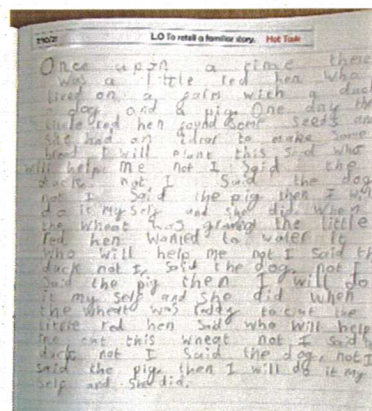 L.O To retell a familiar story. Hot Task
Once upon a time there
was a little red hen who
lived on a farm with a duck
a dog and a pig. One day the
little red hen found some seeds and
she had an idea to make some
bread I will plant this said who
will help me not I said the
duck not I said the dog
not I said the pig then I will
do it my self and she did. When
the wheat was the little
red hen wanted to water it
who will help me not I said the
duck not I, said the dog, not I
said the pig then I will do
it my self and she did when
the wheat was to cut the
little red hen said who will help
me cut this wheat not I said the
duck not I said the dog, not I
said the pig, then I will do it my
self and she did.